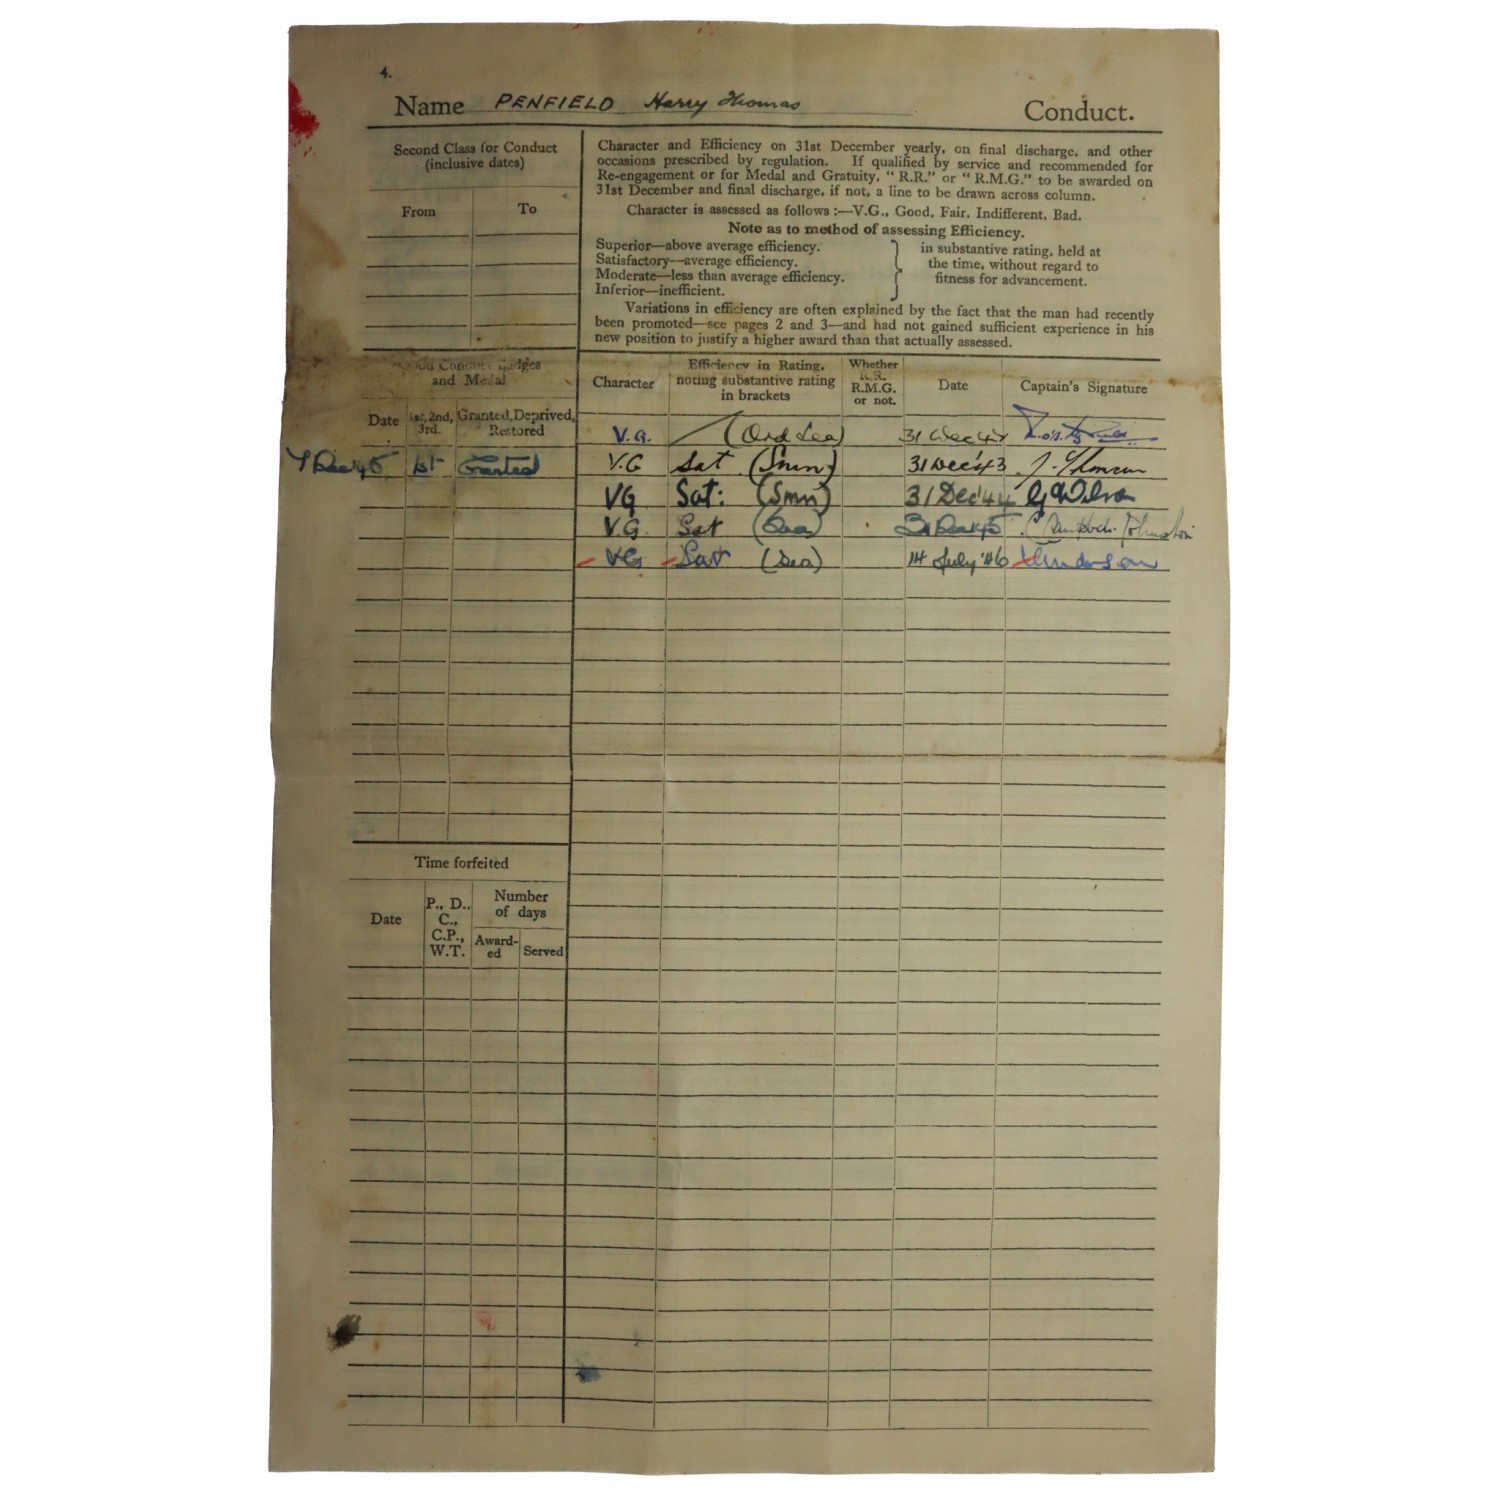 4.
Name PENFIELD Harry Thomas Conduct.
Second Class for Conduct
(inclusive dates)
From To
Character and Efficiency on 31st December yearly, on final discharge, and other
occasions prescribed by regulation. If qualified by service and recommended for
Re-engagement or for Medal and Gratuity, "R.R." or "R.M.G." to be awarded on
31st December and final discharge, if not, a line to be drawn across column.
Character is assessed as follows :—V.G., Good, Fair, Indifferent, Bad.
Note as to method of assessing Efficiency.
Superior—above average efficiency.
Satisfactory—average efficiency.
Moderate—less than average efficiency.
Inferior—inefficient.
in substantive rating, held at
the time, without regard to
fitness for advancement.
Variations in efficiency are often explained by the fact that the man had recently
been promoted—see pages 2 and 3—and had not gained sufficient experience in his
new position to justify a higher award than that actually assessed.
Good Conduct Badges
and Medal
Date 1st, 2nd, 3rd. Granted, Deprived, Restored
7 Dec 45 1st Granted
Character
Efficiency in Rating,
noting substantive rating
in brackets
Whether
R.R.
R.M.G.
or not.
Date
Captain's Signature
V.G. (Ord Sea) 31 Dec 42
V.G Sat (Smn) 31 Dec '43 J. Thomson
VG Sat: (Smn) 31 Dec '44 G Wilson
V.G. Sat (Sea) 31 Dec 45 Johnston
VG Sat (Sea) 14 July '46 Anderson
Time forfeited
Date
P., D.,
C.,
C.P.,
W.T.
Number
of days
Award-
ed
Served